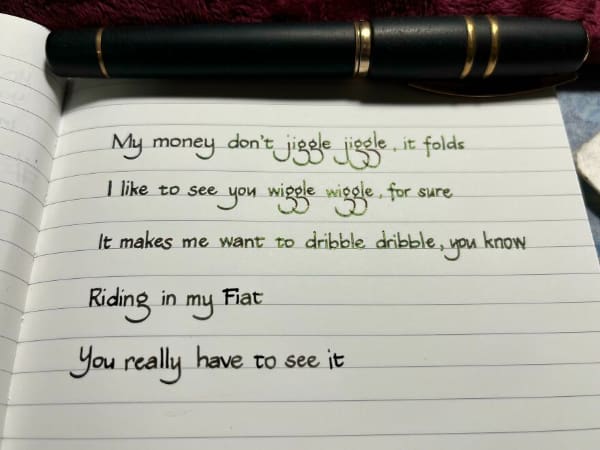 My money don't jiggle jiggle, it folds
I like to see you wiggle wiggle, for sure
It makes me want to dribble dribble, you know
Riding in my Fiat
You really have to see it